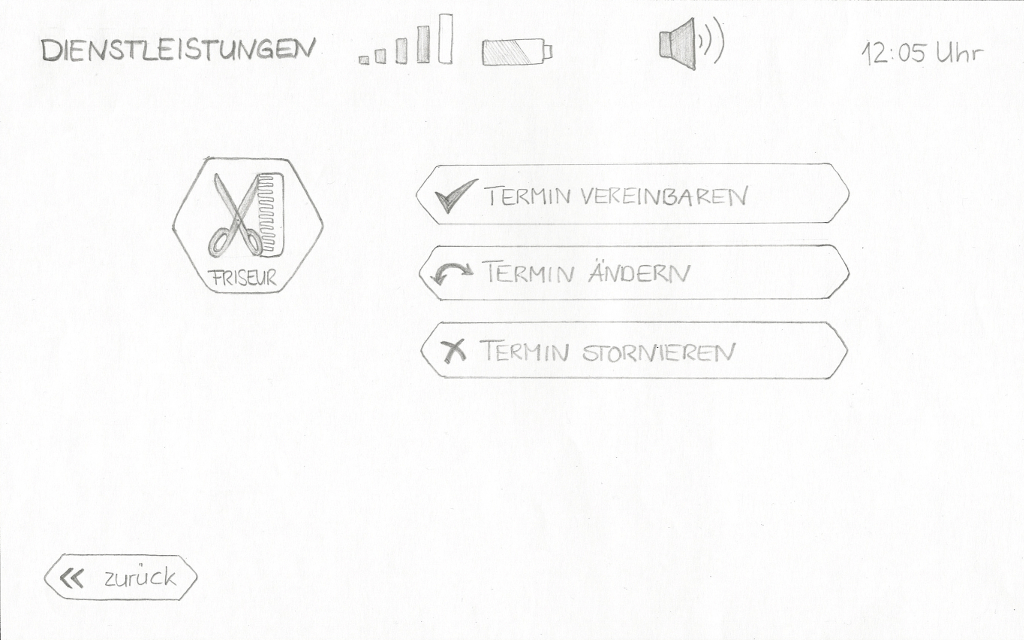 DIENSTLEISTUNGEN
12:05 Uhr
FRISEUR
TERMIN VEREINBAREN
TERMIN ÄNDERN
TERMIN STORNIEREN
zurück